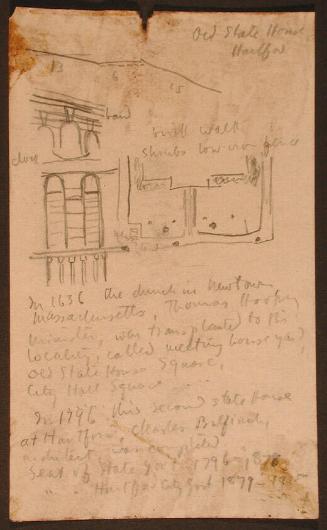 Old State House
Hartford
13
6
5
brick walk
shrubs low iron fence
door
In 1636 the church in Newtown,
Massachusetts, Thomas Hooker
minister, was transplanted to this
locality, called meeting house yard,
Old State House Square,
City Hall Square
In 1796 this second state house
at Hartford, Charles Bulfinch,
architect, was completed
Seat of State Govt 1796-1878
" " Hartford City Govt 1879-